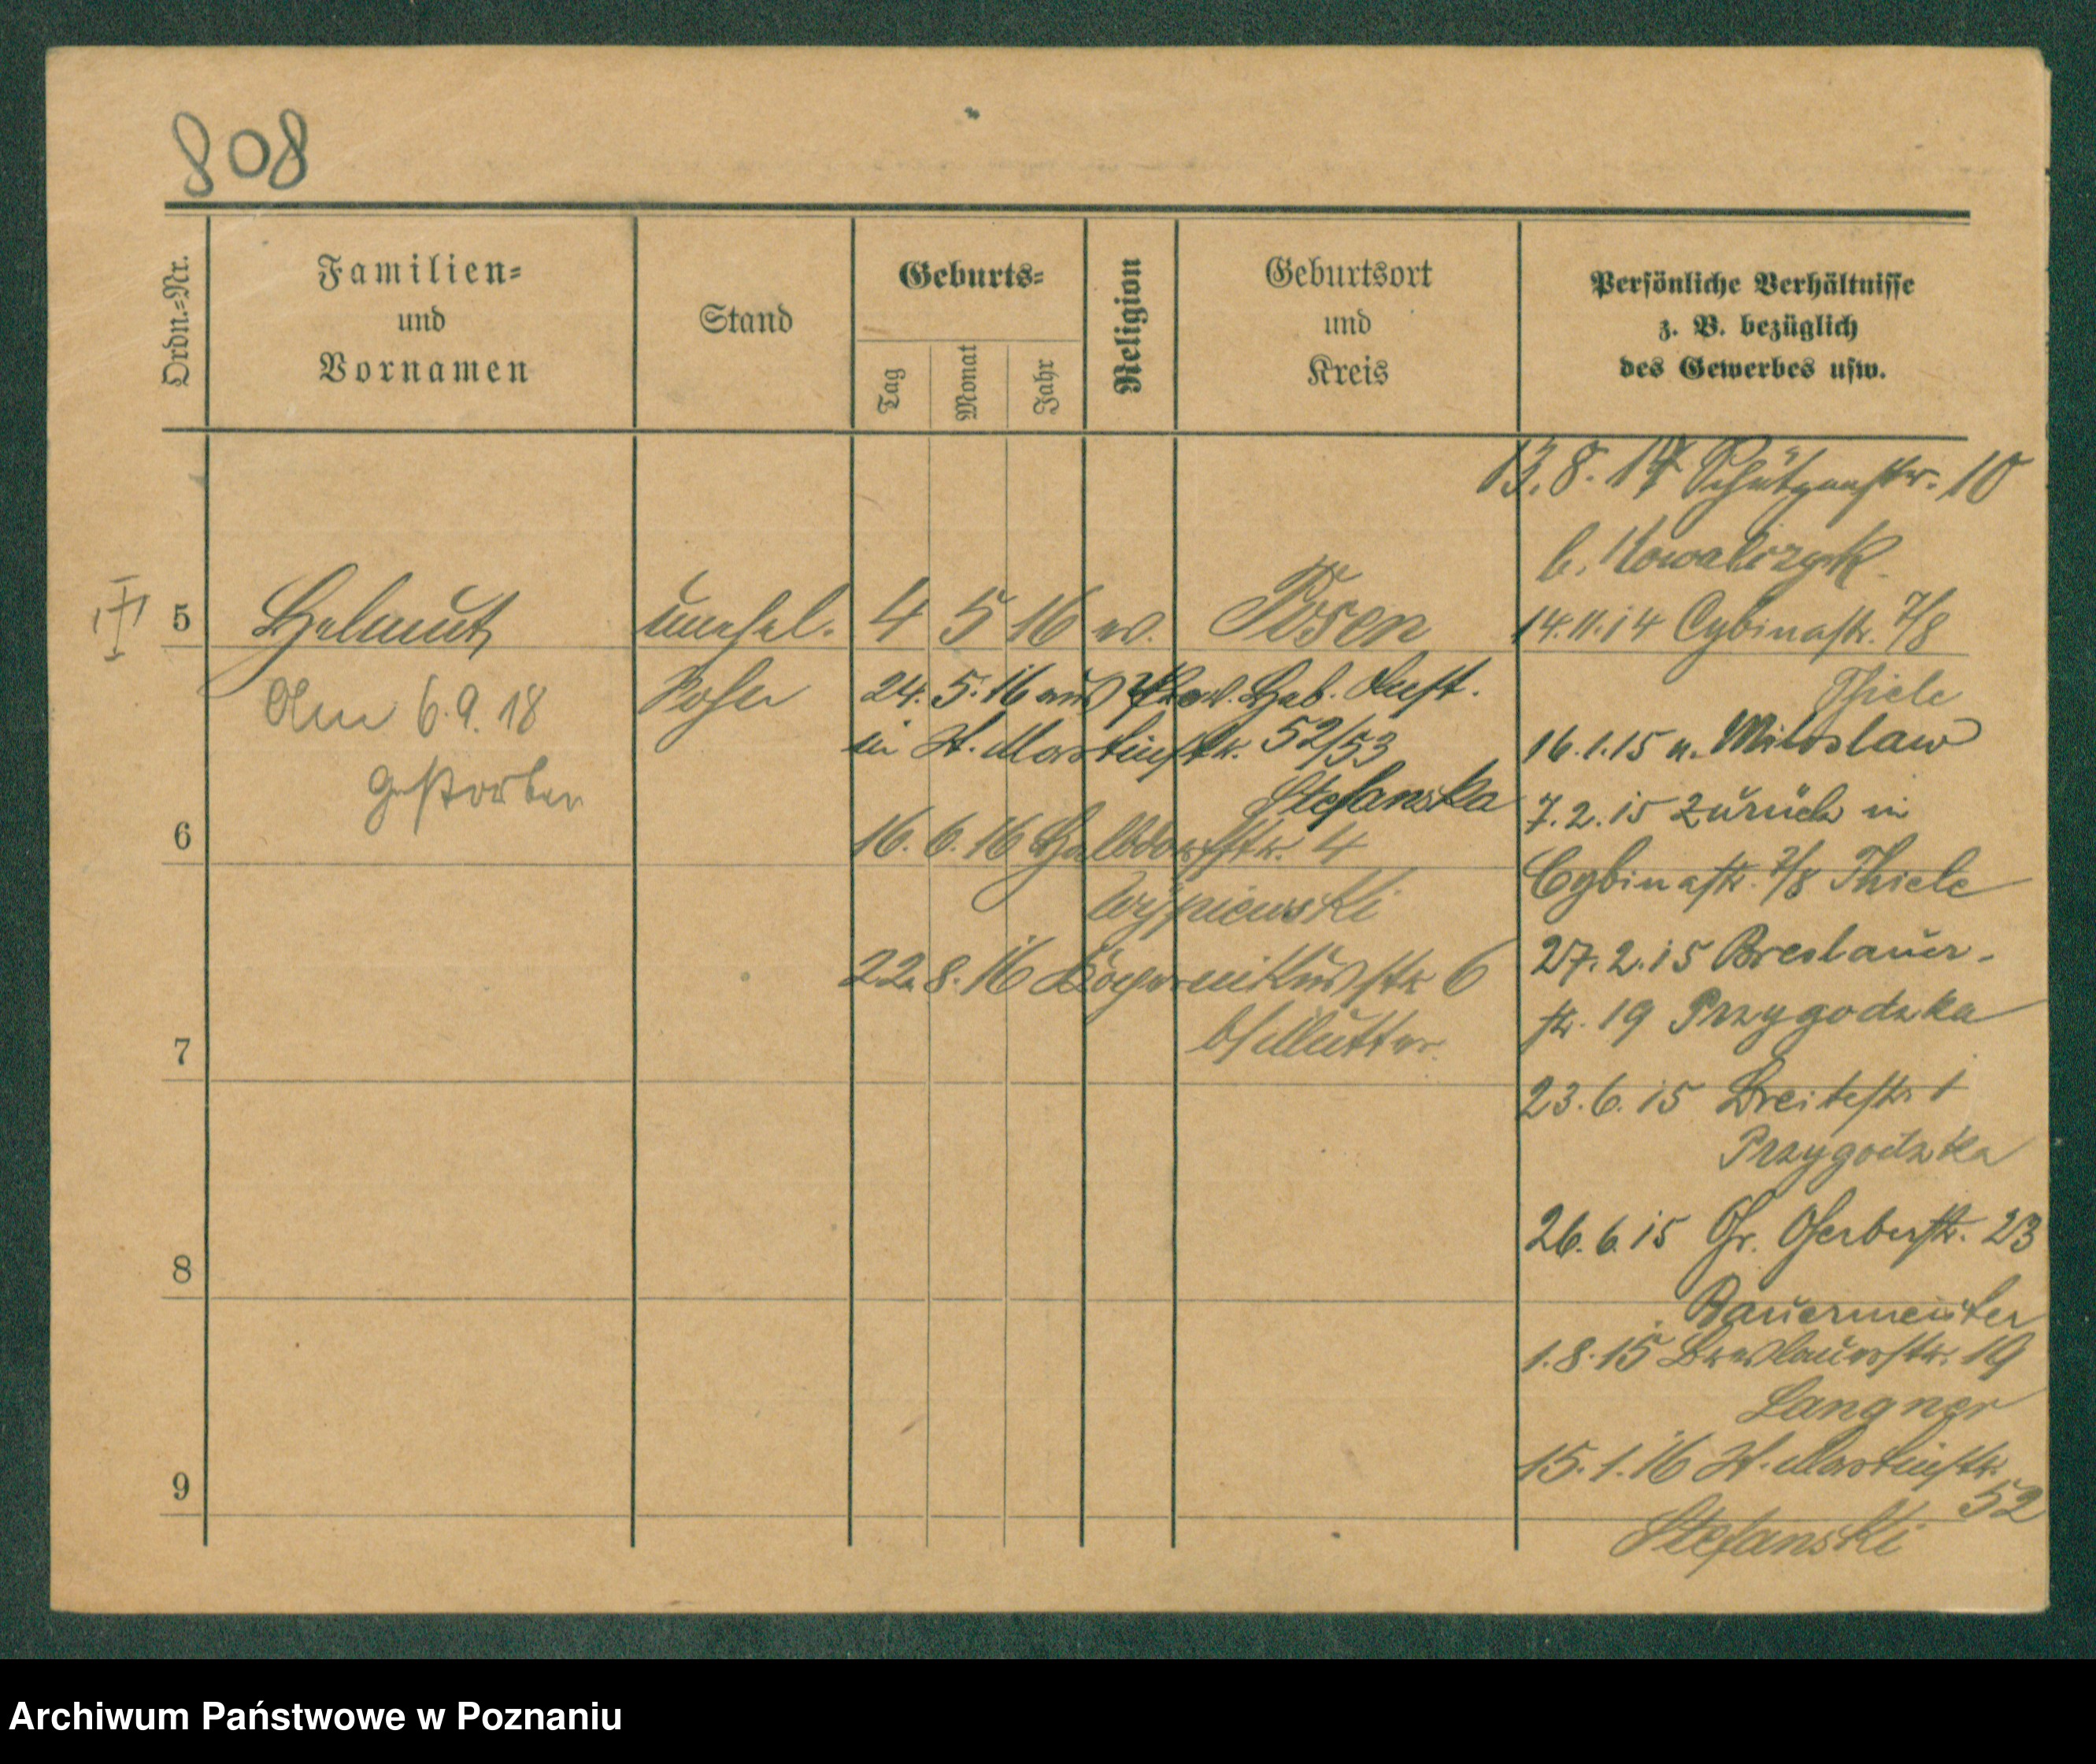 808
Ordn.=Nr.
Familien=
und
Vornamen
Stand
Geburts=
Tag
Monat
Jahr
Religion
Geburtsort
und
Kreis
Persönliche Verhältnisse
z. B. bezüglich
des Gewerbes usw.
13.8.14 Schützenstr. 10
b. Kowalczyk
5 Helmut unehel. 4 5 16 ev. Posen
Sohn
Am 6.9.18
gestorben
14.11.14 Cybinastr. 7/8
Thiele
16.1.15 n. Miloslaw
7.2.15 zurück in
Cybinastr. 7/8 Thiele
27.2.15 Breslauer-
str. 19 Przygodzka
23.6.15 Breitestr. 1
Przygodzka
26.6.15 Gr. Gerberstr. 23
Bauermeister
1.8.15 Breslauerstr. 19
Langner
15.1.16 St. Martinstr.
52
Stefanski
24.5.16 aus Prov. Heb. Anst.
in St. Martinstr. 52/53
Stefanska
6
16.6.16 Halbdorfstr. 4
Wypiewski
22.8.16 Kopernikusstr. 6
b/Mutter
7
8
9
Archiwum Państwowe w Poznaniu